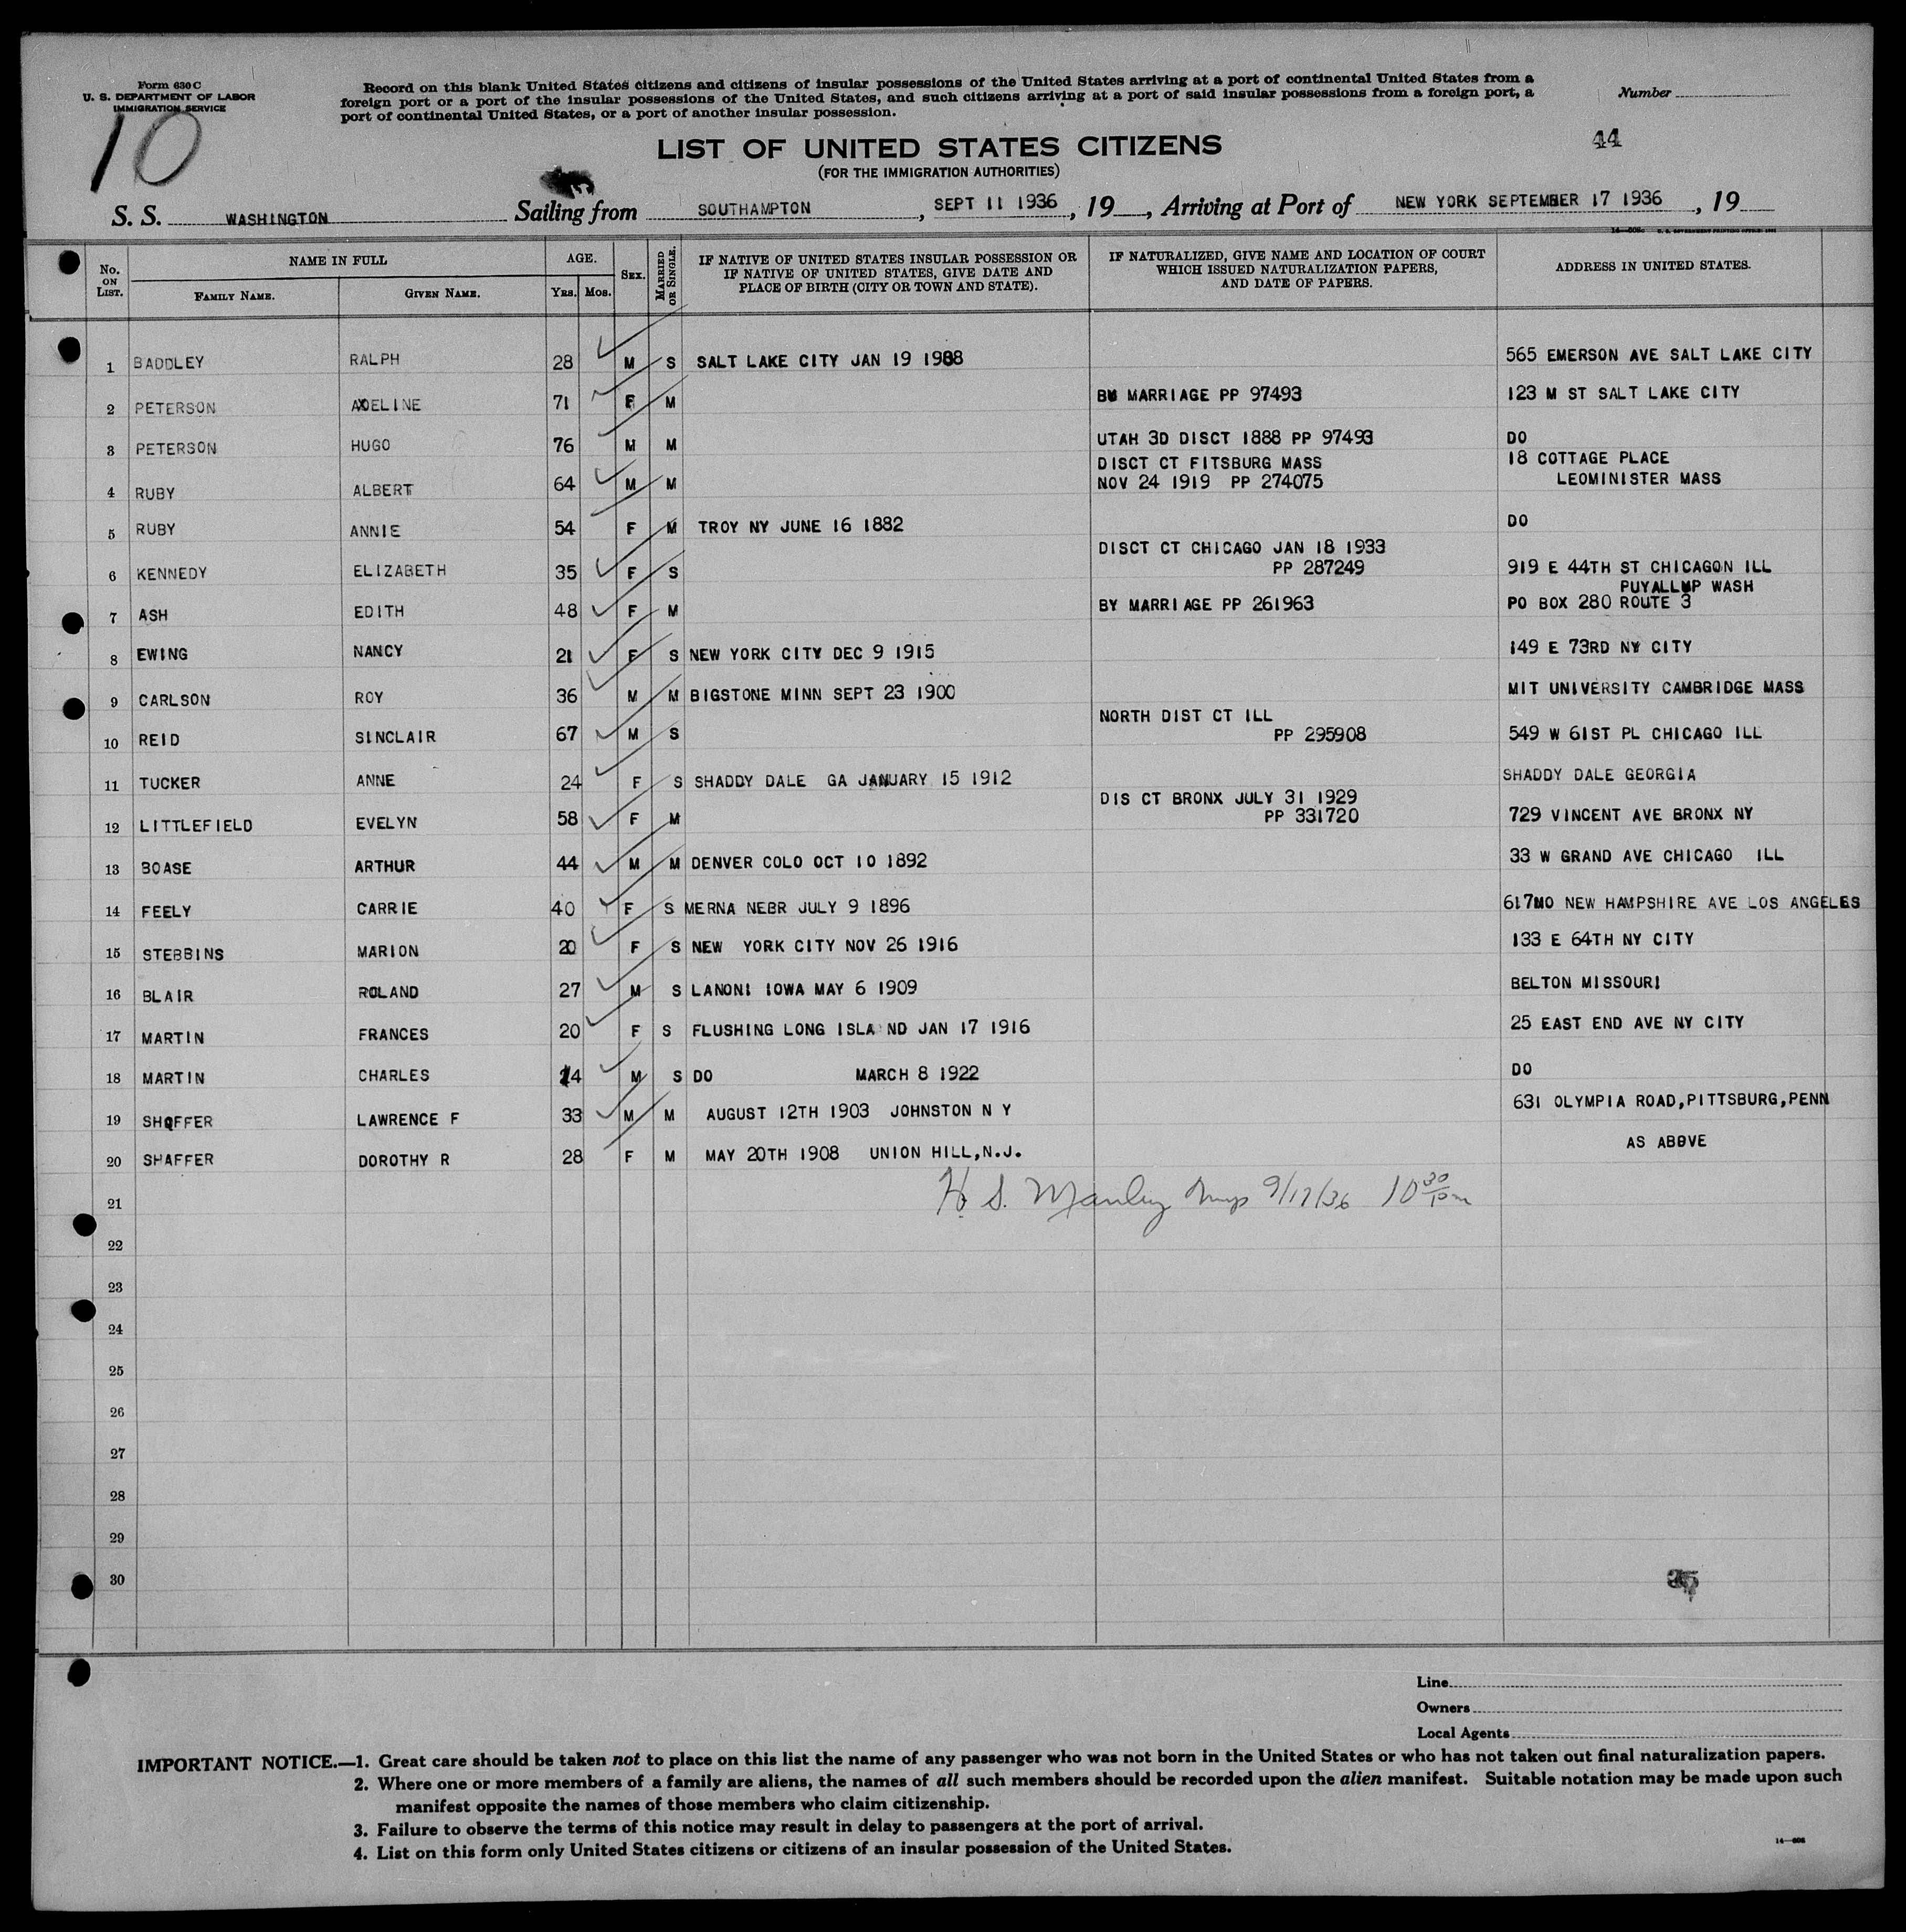 Form 630 C
U. S. DEPARTMENT OF LABOR
IMMIGRATION SERVICE
10
Record on this blank United States citizens and citizens of insular possessions of the United States arriving at a port of continental United States from a
foreign port or a port of the insular possessions of the United States, and such citizens arriving at a port of said insular possessions from a foreign port, a
port of continental United States, or a port of another insular possession.
Number
44
LIST OF UNITED STATES CITIZENS
(FOR THE IMMIGRATION AUTHORITIES)
S. S. WASHINGTON Sailing from SOUTHAMPTON, SEPT 11 1936, 19 , Arriving at Port of NEW YORK SEPTEMBER 17 1936, 19
No. ON LIST. NAME IN FULL FAMILY NAME. GIVEN NAME. AGE. YRS. MOS. SEX. MARRIED OR SINGLE. IF NATIVE OF UNITED STATES INSULAR POSSESSION OR IF NATIVE OF UNITED STATES, GIVE DATE AND PLACE OF BIRTH (CITY OR TOWN AND STATE). IF NATURALIZED, GIVE NAME AND LOCATION OF COURT WHICH ISSUED NATURALIZATION PAPERS, AND DATE OF PAPERS. ADDRESS IN UNITED STATES.
1 BADDLEY RALPH 28 M S SALT LAKE CITY JAN 19 1908 565 EMERSON AVE SALT LAKE CITY
2 PETERSON ADELINE 71 F M BY MARRIAGE PP 97493 123 M ST SALT LAKE CITY
3 PETERSON HUGO 76 M M UTAH 3D DISCT 1888 PP 97493 DO
DISCT CT FITSBURG MASS 18 COTTAGE PLACE
4 RUBY ALBERT 64 M M NOV 24 1919 PP 274075 LEOMINISTER MASS
5 RUBY ANNIE 54 F M TROY NY JUNE 16 1882 DO
DISCT CT CHICAGO JAN 18 1933
6 KENNEDY ELIZABETH 35 F S PP 287249 919 E 44TH ST CHICAGON ILL
PUYALLUP WASH
7 ASH EDITH 48 F M BY MARRIAGE PP 261963 PO BOX 280 ROUTE 3
8 EWING NANCY 21 F S NEW YORK CITY DEC 9 1915 149 E 73RD NY CITY
9 CARLSON ROY 36 M M BIGSTONE MINN SEPT 23 1900 MIT UNIVERSITY CAMBRIDGE MASS
NORTH DIST CT ILL
10 REID SINCLAIR 67 M S PP 295908 549 W 61ST PL CHICAGO ILL
11 TUCKER ANNE 24 F S SHADDY DALE GA JANUARY 15 1912 SHADDY DALE GEORGIA
DIS CT BRONX JULY 31 1929
12 LITTLEFIELD EVELYN 58 F M PP 331720 729 VINCENT AVE BRONX NY
13 BOASE ARTHUR 44 M M DENVER COLO OCT 10 1892 33 W GRAND AVE CHICAGO ILL
14 FEELY CARRIE 40 F S MERNA NEBR JULY 9 1896 617 NO NEW HAMPSHIRE AVE LOS ANGELES
15 STEBBINS MARION 20 F S NEW YORK CITY NOV 26 1916 133 E 64TH NY CITY
16 BLAIR ROLAND 27 M S LANONI IOWA MAY 6 1909 BELTON MISSOURI
17 MARTIN FRANCES 20 F S FLUSHING LONG ISLA ND JAN 17 1916 25 EAST END AVE NY CITY
18 MARTIN CHARLES 14 M S DO MARCH 8 1922 DO
19 SHAFFER LAWRENCE F 33 M M AUGUST 12TH 1903 JOHNSTON N Y 631 OLYMPIA ROAD,PITTSBURG,PENN
20 SHAFFER DOROTHY R 28 F M MAY 20TH 1908 UNION HILL,N.J. AS ABOVE
21 H. S. Manley 9/17/36 10 30 pm
22
23
24
25
26
27
28
29
30
Line
Owners
Local Agents
IMPORTANT NOTICE.—1. Great care should be taken not to place on this list the name of any passenger who was not born in the United States or who has not taken out final naturalization papers.
2. Where one or more members of a family are aliens, the names of all such members should be recorded upon the alien manifest. Suitable notation may be made upon such
manifest opposite the names of those members who claim citizenship.
3. Failure to observe the terms of this notice may result in delay to passengers at the port of arrival.
4. List on this form only United States citizens or citizens of an insular possession of the United States.